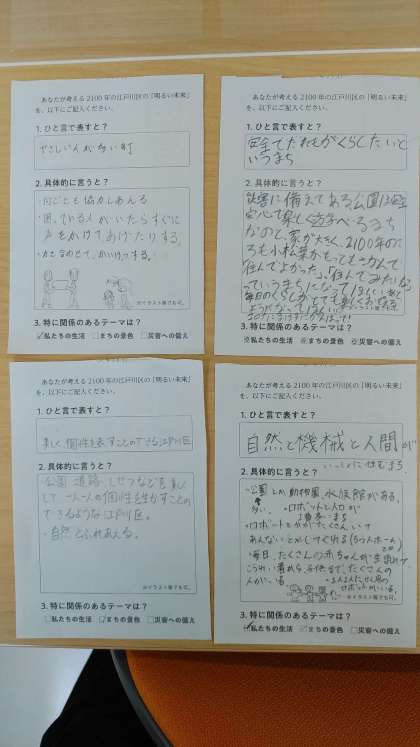 あなたが考える2100年の江戸川区の「明るい未来」
を、以下にご記入ください。
1. ひと言で表すと？
やさしい人が多い町
2. 具体的に言うと？
・何ごとも協力しあえる
・困っている人がいたらすぐに
声をかけてあげたりする。
・力を合わせて、かいけつする。
※イラスト等でも可。
3. 特に関係のあるテーマは？
☑私たちの生活 □まちの景色 □災害への備え
あなたが考える2100年の江戸川区の「明るい未来」
を、以下にご記入ください。
1. ひと言で表すと？
安全でだれもがくらしたいと
いうまち
2. 具体的に言うと？
災害に備えてある公園は安
心して楽しく遊べるまち
家が大きく、2100年のこ
ろも小松菜がもってもさかんで
住んでよかった、住んでみたいな
っていうまちになってほしい
毎日のくらしがとても楽しく
3. 特に関係のあるテーマは？
☑私たちの生活 ☑まちの景色 ☑災害への備え
あなたが考える2100年の江戸川区の「明るい未来」
を、以下にご記入ください。
1. ひと言で表すと？
楽しく個性を表すことのできる江戸川区
2. 具体的に言うと？
・公園、道路、しせつなどを楽し
くして一人一人の個性を生かすことの
できるような江戸川区。
・自然とふれあえる。
※イラスト等でも可。
3. 特に関係のあるテーマは？
□私たちの生活 ☑まちの景色 □災害への備え
あなたが考える2100年の江戸川区の「明るい未来」
を、以下にご記入ください。
1. ひと言で表すと？
自然と機械と人間が
いっしょに住むまち
2. 具体的に言うと？
・公園とか、動物園、水族館がある。
多い。 ・ロボットと人が
・ロボットとかがたくさんいて
あんないとかしてくれる(ろう人ホーム)
・毎日、たくさんの赤ちゃんが生まれて
たくさんの
人がいる
ロボットがいる。
※イラスト等でも可。
3. 特に関係のあるテーマは？
☑私たちの生活 ☑まちの景色 □災害への備え